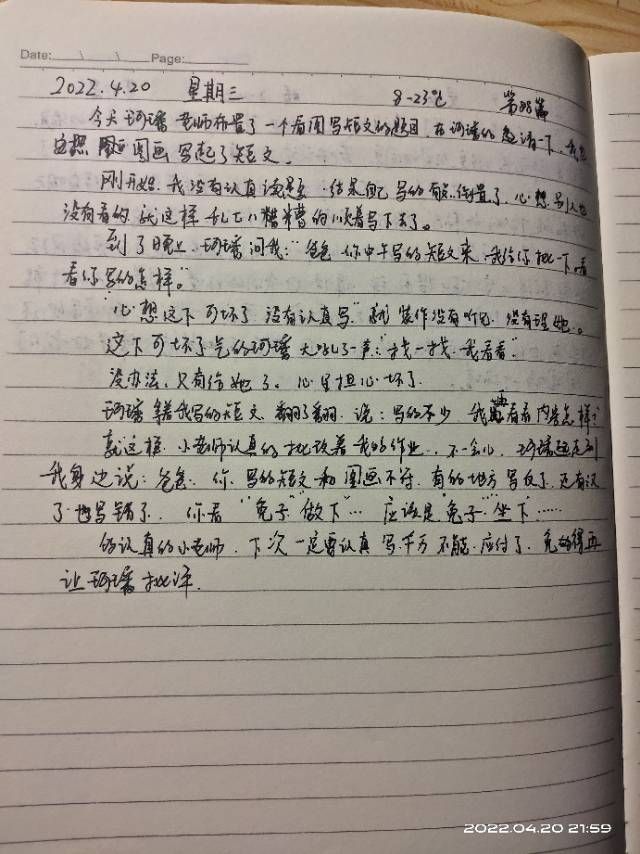 Date: / / Page:
2022.4.20 星期三 8-23℃ 第88篇
今天珂璠老师布置了一个看图写短文的题目,在珂璠的邀请下,我也
图画写起了短文。
刚开始,我没有认真读题,结果自己写的有点倒置了,心想别人也
没有看的,就这样乱七八糟糟的顺着写下去了。
到了晚上,珂璠问我:"爸爸你中午写的短文来,我给你批一下,看
看你写的怎样。"
"心想这下可坏了,没有认真写。"就装作没有听见,没有理她。
这下可坏了,气的珂璠大吼了一声:"找一找,我看看"
没办法,只有给她了。心里担心坏了.
珂璠拿着我写的短文,翻了翻,说:写的不少,我看看内容怎样?
就这样,小老师认真的批改着我的作业,不一会儿,珂璠走到
我身边说:爸爸,你写的短文和图画不符,有的地方写反了,还有汉
了也写错了,你看"兔子"做下"… 应该是"兔子"坐下"……
的认真的小老师,下次一定要认真写,千万不能应付了,免的得再
让珂璠批评.
2022.04.20 21:59